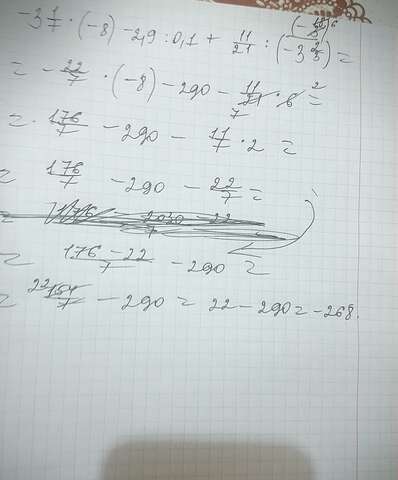 -3 1/7 · (-8) - 2,9 : 0,1 + 11/21 : (-3 2/3) =
= -22/7 · (-8) - 290 - 11/21 · 6 =
= · 176/7 - 290 - 11/7 · 2 =
= 176/7 - 290 - 22/7 =
= 176-22/7 - 290 =
= 154/7 - 290 = 22 - 290 = -268.